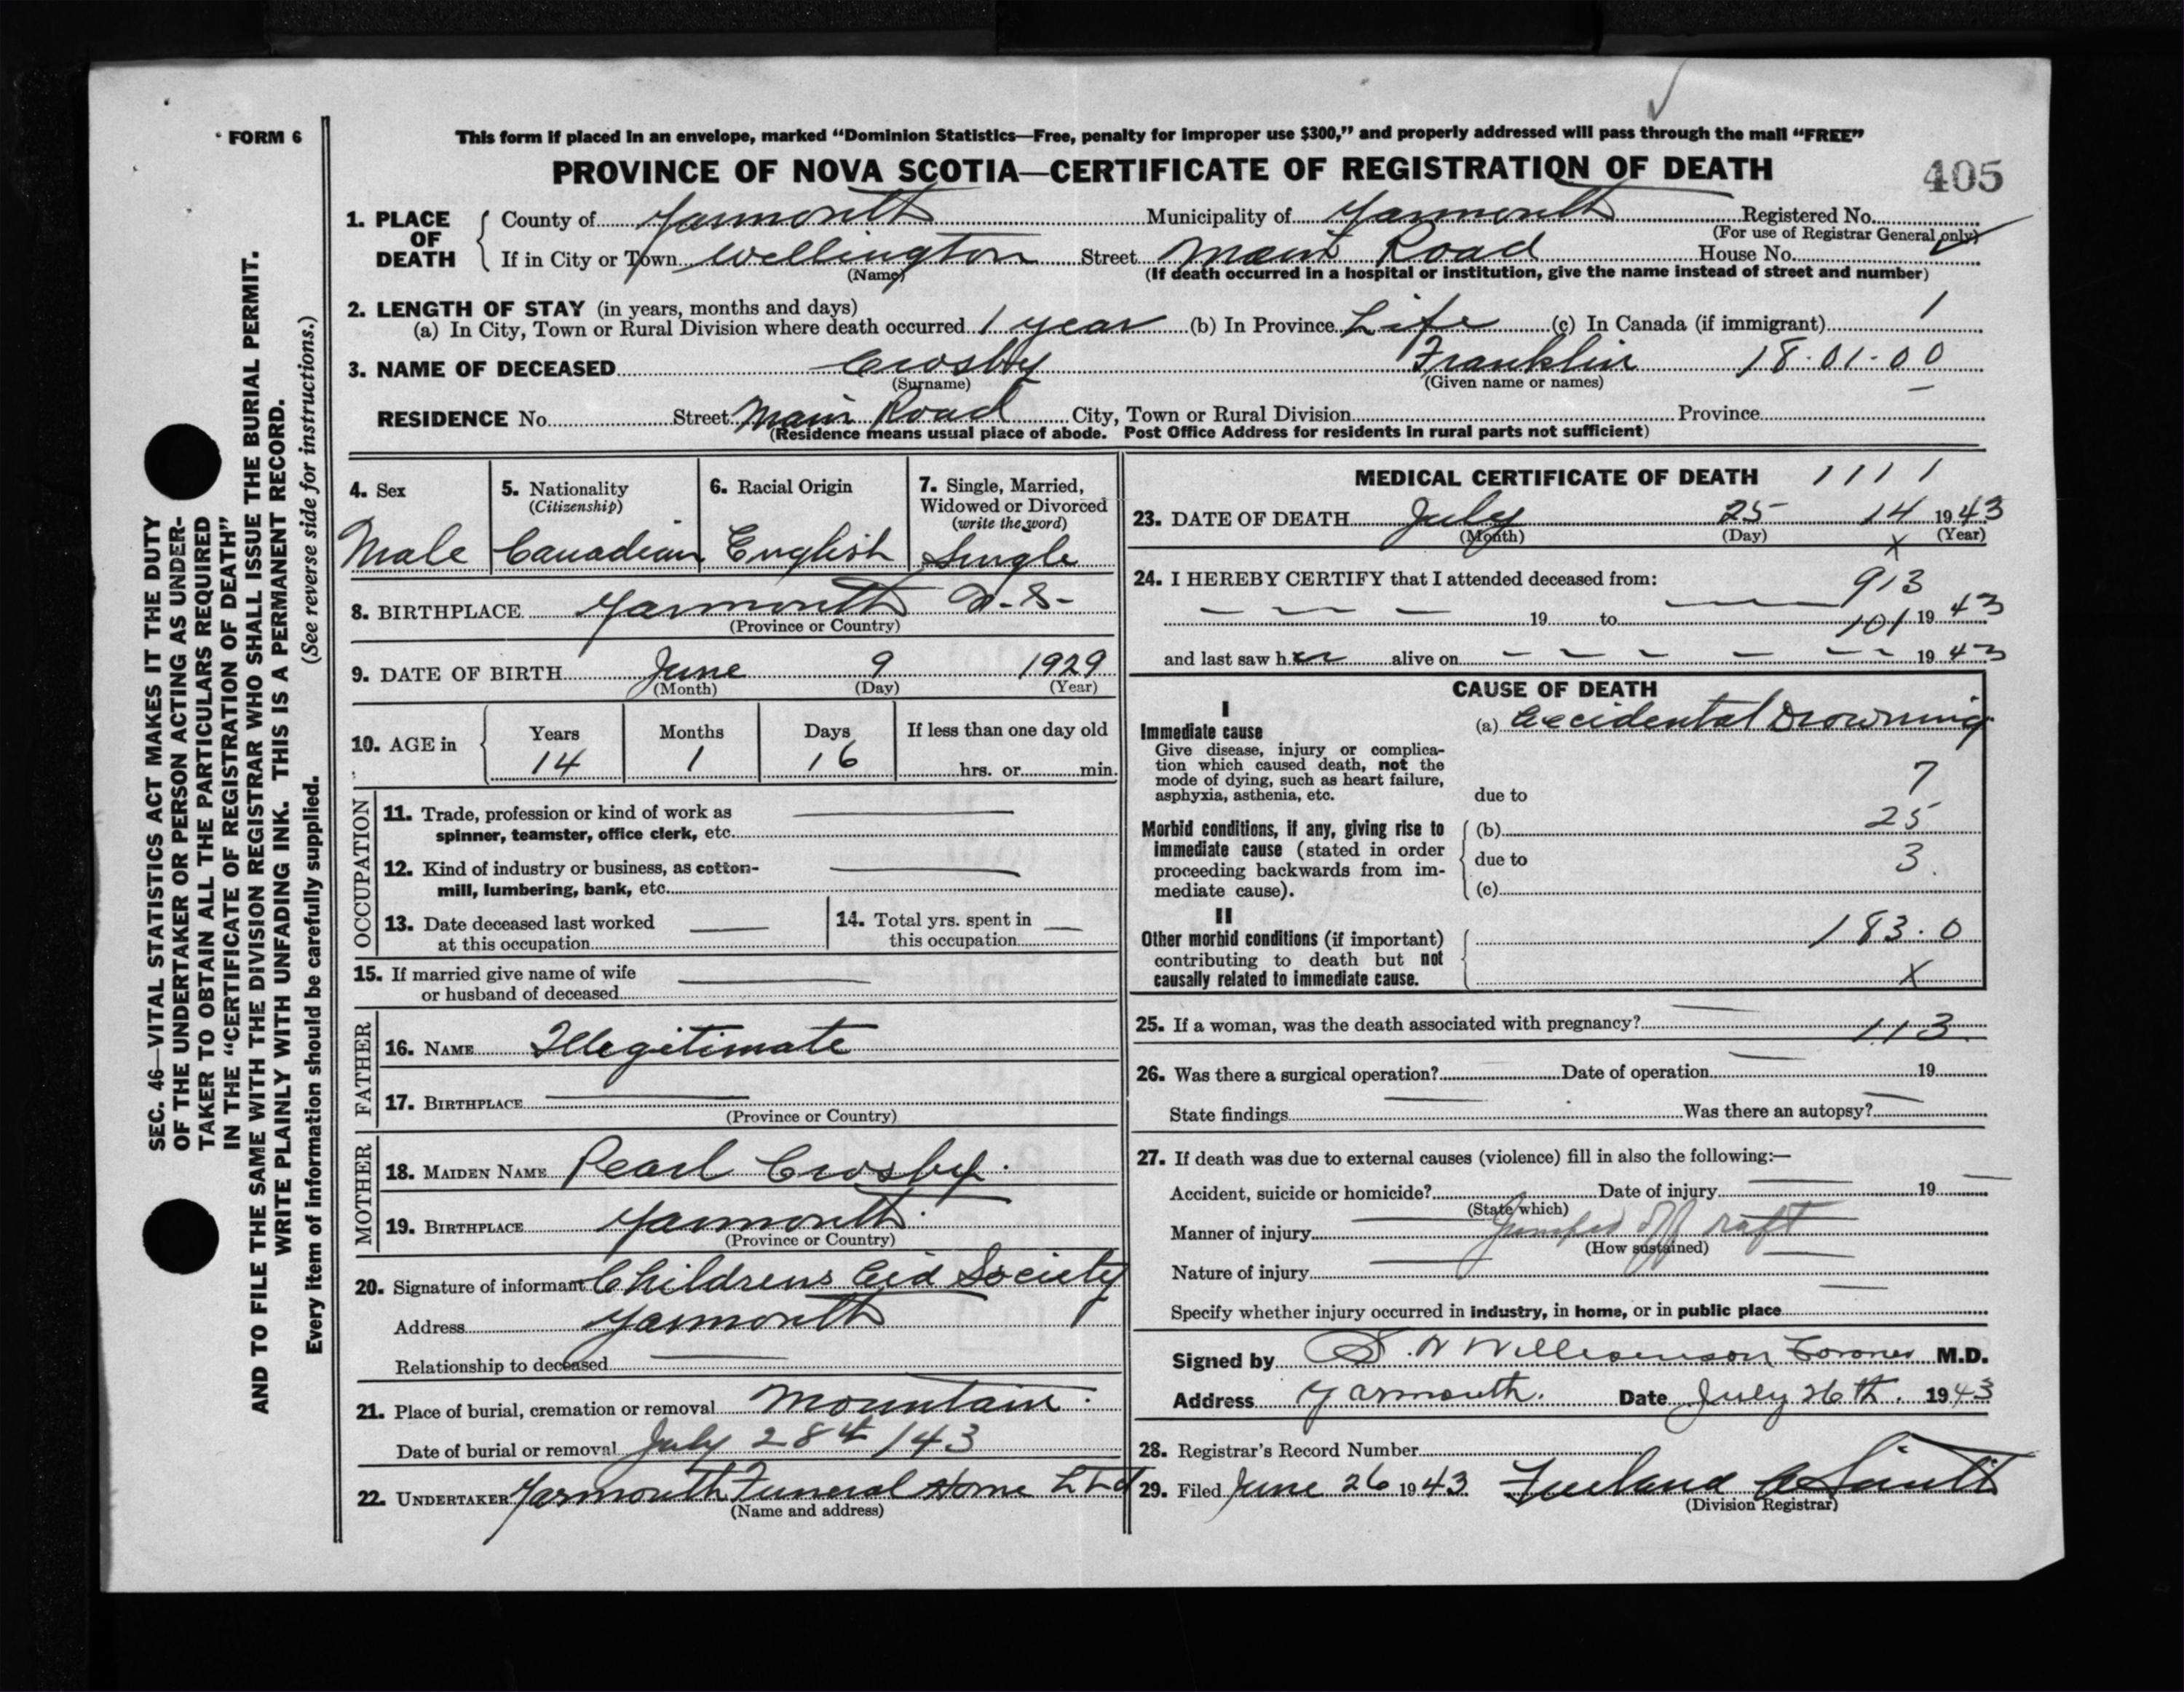 FORM 6
This form if placed in an envelope, marked "Dominion Statistics—Free, penalty for improper use $300," and properly addressed will pass through the mail "FREE"
PROVINCE OF NOVA SCOTIA—CERTIFICATE OF REGISTRATION OF DEATH
405
SEC. 46—VITAL STATISTICS ACT MAKES IT THE DUTY
OF THE UNDERTAKER OR PERSON ACTING AS UNDER-
TAKER TO OBTAIN ALL THE PARTICULARS REQUIRED
IN THE "CERTIFICATE OF REGISTRATION OF DEATH"
AND TO FILE THE SAME WITH THE DIVISION REGISTRAR WHO SHALL ISSUE THE BURIAL PERMIT.
WRITE PLAINLY WITH UNFADING INK. THIS IS A PERMANENT RECORD.
Every item of information should be carefully supplied. (See reverse side for instructions.)
1. PLACE OF DEATH County of Yarmouth Municipality of Yarmouth Registered No.
(For use of Registrar General only)
If in City or Town Wellington Street Main Road House No.
(Name) (If death occurred in a hospital or institution, give the name instead of street and number)
2. LENGTH OF STAY (in years, months and days)
(a) In City, Town or Rural Division where death occurred 1 year (b) In Province Life (c) In Canada (if immigrant) 1
3. NAME OF DECEASED Crosby Franklin 18.01.00
(Surname) (Given name or names)
RESIDENCE No. Street Main Road City, Town or Rural Division Province
(Residence means usual place of abode. Post Office Address for residents in rural parts not sufficient)
4. Sex
Male
5. Nationality
(Citizenship)
Canadian
6. Racial Origin
English
7. Single, Married,
Widowed or Divorced
(write the word)
Single
8. BIRTHPLACE Yarmouth N.S.
(Province or Country)
9. DATE OF BIRTH June 9 1929
(Month) (Day) (Year)
10. AGE in Years Months Days If less than one day old
14 1 16 hrs. or min.
OCCUPATION
11. Trade, profession or kind of work as
spinner, teamster, office clerk, etc.
12. Kind of industry or business, as cotton-
mill, lumbering, bank, etc.
13. Date deceased last worked
at this occupation
14. Total yrs. spent in
this occupation
15. If married give name of wife
or husband of deceased
FATHER
16. NAME Illegitimate
17. BIRTHPLACE
(Province or Country)
MOTHER
18. MAIDEN NAME Pearl Crosby
19. BIRTHPLACE Yarmouth
(Province or Country)
20. Signature of informant Childrens Aid Society
Address Yarmouth
Relationship to deceased
21. Place of burial, cremation or removal Mountain
Date of burial or removal July 28th /43
22. UNDERTAKER Yarmouth Funeral Home Ltd
(Name and address)
MEDICAL CERTIFICATE OF DEATH 1 1 1 1
23. DATE OF DEATH July 25 14 1943
(Month) (Day) (Year)
x
24. I HEREBY CERTIFY that I attended deceased from: 913
19 to 101 1943
and last saw her alive on 1943
CAUSE OF DEATH
I
Immediate cause
Give disease, injury or complica-
tion which caused death, not the
mode of dying, such as heart failure,
asphyxia, asthenia, etc.
(a) Accidental Drowning
7
due to
Morbid conditions, if any, giving rise to
immediate cause (stated in order
proceeding backwards from im-
mediate cause).
(b) 25
due to 3.
(c)
II
Other morbid conditions (if important)
contributing to death but not
causally related to immediate cause.
183.0
X
25. If a woman, was the death associated with pregnancy? 113.
26. Was there a surgical operation? Date of operation 19
State findings Was there an autopsy?
27. If death was due to external causes (violence) fill in also the following:—
Accident, suicide or homicide? Date of injury 19
(State which)
Manner of injury Jumped off raft
(How sustained)
Nature of injury
Specify whether injury occurred in industry, in home, or in public place
Signed by S. W Williamson Coroner M.D.
Address Yarmouth. Date July 26th. 1943
28. Registrar's Record Number
29. Filed June 26 1943
(Division Registrar)